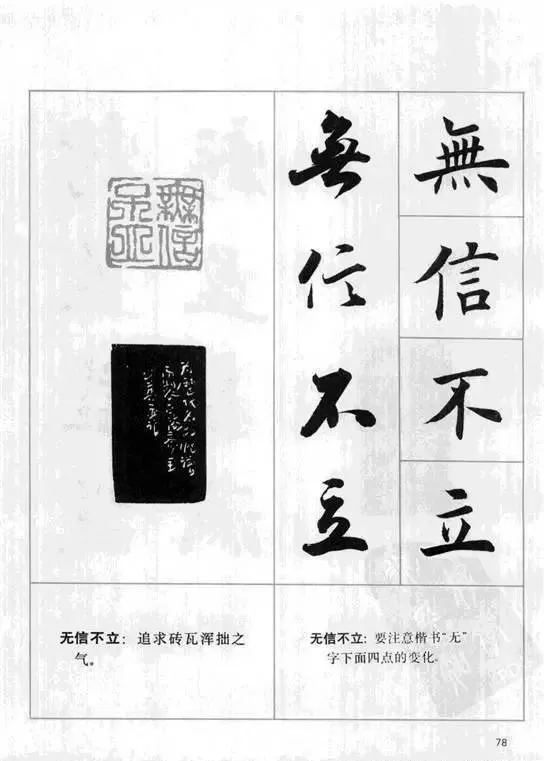 無信不立
無信不立
無信不立
无信不立：追求砖瓦浑拙之
气。
无信不立：要注意楷书“无”
字下面四点的变化。
78